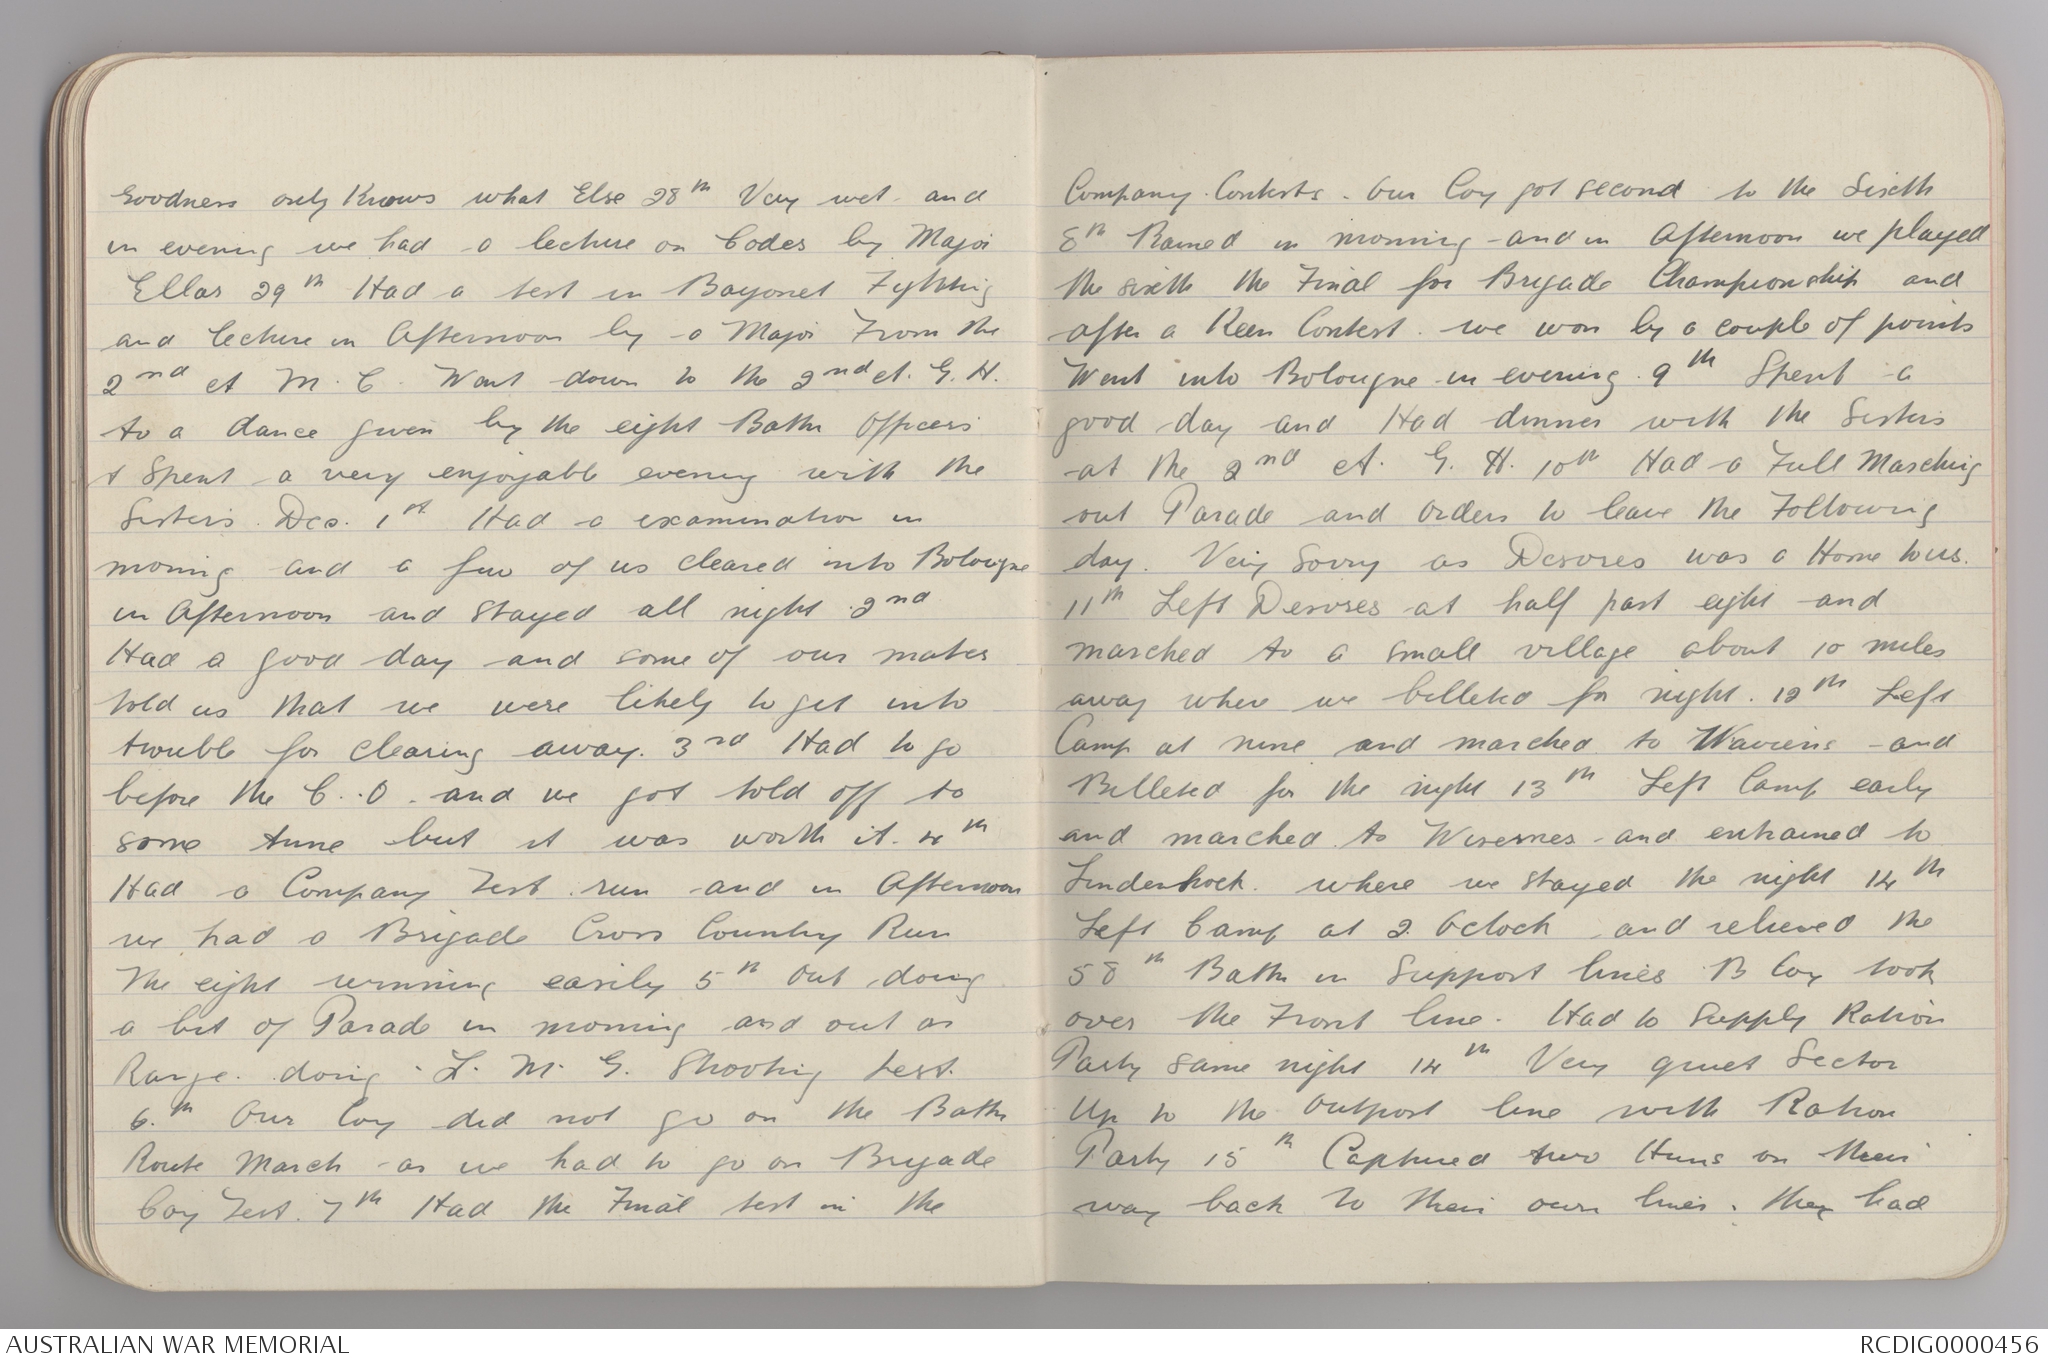 Goodness only Knows what Else 28th Very wet and
in evening we had a lecture on Codes by Major
Ellas 29th Had a test in Bayonet Fighting
and lecture in Afternoon by a Major From the
2nd A M. C. Went down to the 2nd A. G. H.
to a dance given by the eight Battn Officers
& Spent a very enjoyable evening with the
Sisters. Dec. 1st Had a examination in
morning and a few of us cleared into Bolougne
in Afternoon and stayed all night 2nd
Had a good day and some of our mates
told us that we were likely to get into
trouble for clearing away. 3rd Had to go
before the C. O. and we got told off to
some tune but it was worth it. 4th
Had a Company Test run and in Afternoon
we had a Brigade Cross Country Run
The eight winning easily 5th Out doing
a bit of Parade in morning and out on
Range doing L. M. G. Shooting test.
6th Our Coy did not go on the Battn
Route March as we had to go on Brigade
Coy Test. 7th Had the Final test in the
Company Contests. Our Coy got second to the Sixth
8th Rained in morning and in Afternoon we played
the sixth the Final for Brigade Championship and
after a Keen Contest we won by a couple of points
Went into Bolougne in evening. 9th Spent a
good day and Had dinner with the Sisters
at the 2nd A. G. H. 10th Had a Full Marching
out Parade and orders to leave the Following
day. Very Sorry as Desvres was a Home to us.
11th Left Desvres at half past eight and
marched to a small village about 10 miles
away where we billeted for night. 12th Left
Camp at nine and marched to Wavrens and
Billeted for the night 13th Left Camp early
and marched to Wisernes and entrained to
Lindenhoek where we stayed the night 14th
Left Camp at 2 Oclock and relieved the
58th Battn in Support lines B Coy took
over the Front line. Had to Supply Ration
Party same night 14th Very quiet Sector
Up to the Outpost line with Ration
Party 15th Captured two Huns on their
way back to their own lines. they had
AUSTRALIAN WAR MEMORIAL
RCDIG0000456